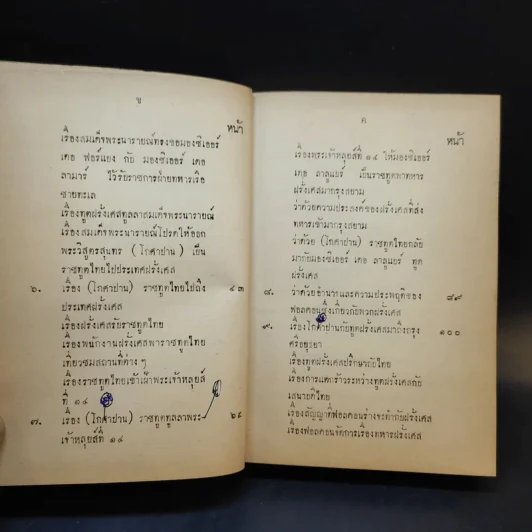 ข
หน้า
เรื่องสมเด็จพระนารายณ์ทรงขอมองซิเออร์
เดอ ฟอร์แบง กับ มองซิเออร์ เดอ
ลามาร์ ไว้รับราชการฝ่ายทหารเรือ
ชายทะเล
เรื่องทูตฝรั่งเศสทูลลาสมเด็จพระนารายณ์
เรื่องสมเด็จพระนารายณ์โปรดให้ออก
พระวิสูตรสุนทร (โกศาปาน) เป็น
ราชทูตไทยไปประเทศฝรั่งเศส
๖. เรื่อง (โกศาปาน) ราชทูตไทยไปถึง ๔๓
ประเทศฝรั่งเศส
เรื่องฝรั่งเศสรับราชทูตไทย
เรื่องพนักงานฝรั่งเศสพาราชทูตไทย
เที่ยวชมสถานที่ต่าง ๆ
เรื่องราชทูตไทยเข้าเฝ้าพระเจ้าหลุยส์
ที่ ๑๔
๗. เรื่อง (โกศาปาน) ราชทูตทูลลาพระ ๖๕
เจ้าหลุยส์ที่ ๑๔
ค
หน้า
เรื่องพระเจ้าหลุยส์ที่ ๑๔ ให้มองซิเออร์
เดอ ลาลูแบร์ เป็นราชทูตพาทหาร
ฝรั่งเศสมากรุงสยาม
ว่าด้วยความประสงค์ของฝรั่งเศสที่ส่ง
ทหารเข้ามากรุงสยาม
ว่าด้วย (โกศาปาน) ราชทูตไทยกลับ
มากับมองซิเออร์ เดอ ลาลูแบร์ ทูต
ฝรั่งเศส
๘. ว่าด้วยอำนาจและความประพฤติของ ๘๙
ฟอลคอนซึ่งเกี่ยวกับพวกฝรั่งเศส
๙. เรื่องโกศาปานกับทูตฝรั่งเศสมาถึงกรุง ๑๐๐
ศรีอยุธยา
เรื่องทูตฝรั่งเศสปรึกษากับไทย
เรื่องการแตกร้าวระหว่างทูตฝรั่งเศสกับ
เสนาบดีไทย
เรื่องสัญญาที่ฟอลคอนร่างจะทำกับฝรั่งเศส
เรื่องฟอลคอนจัดการเรื่องทหารฝรั่งเศส